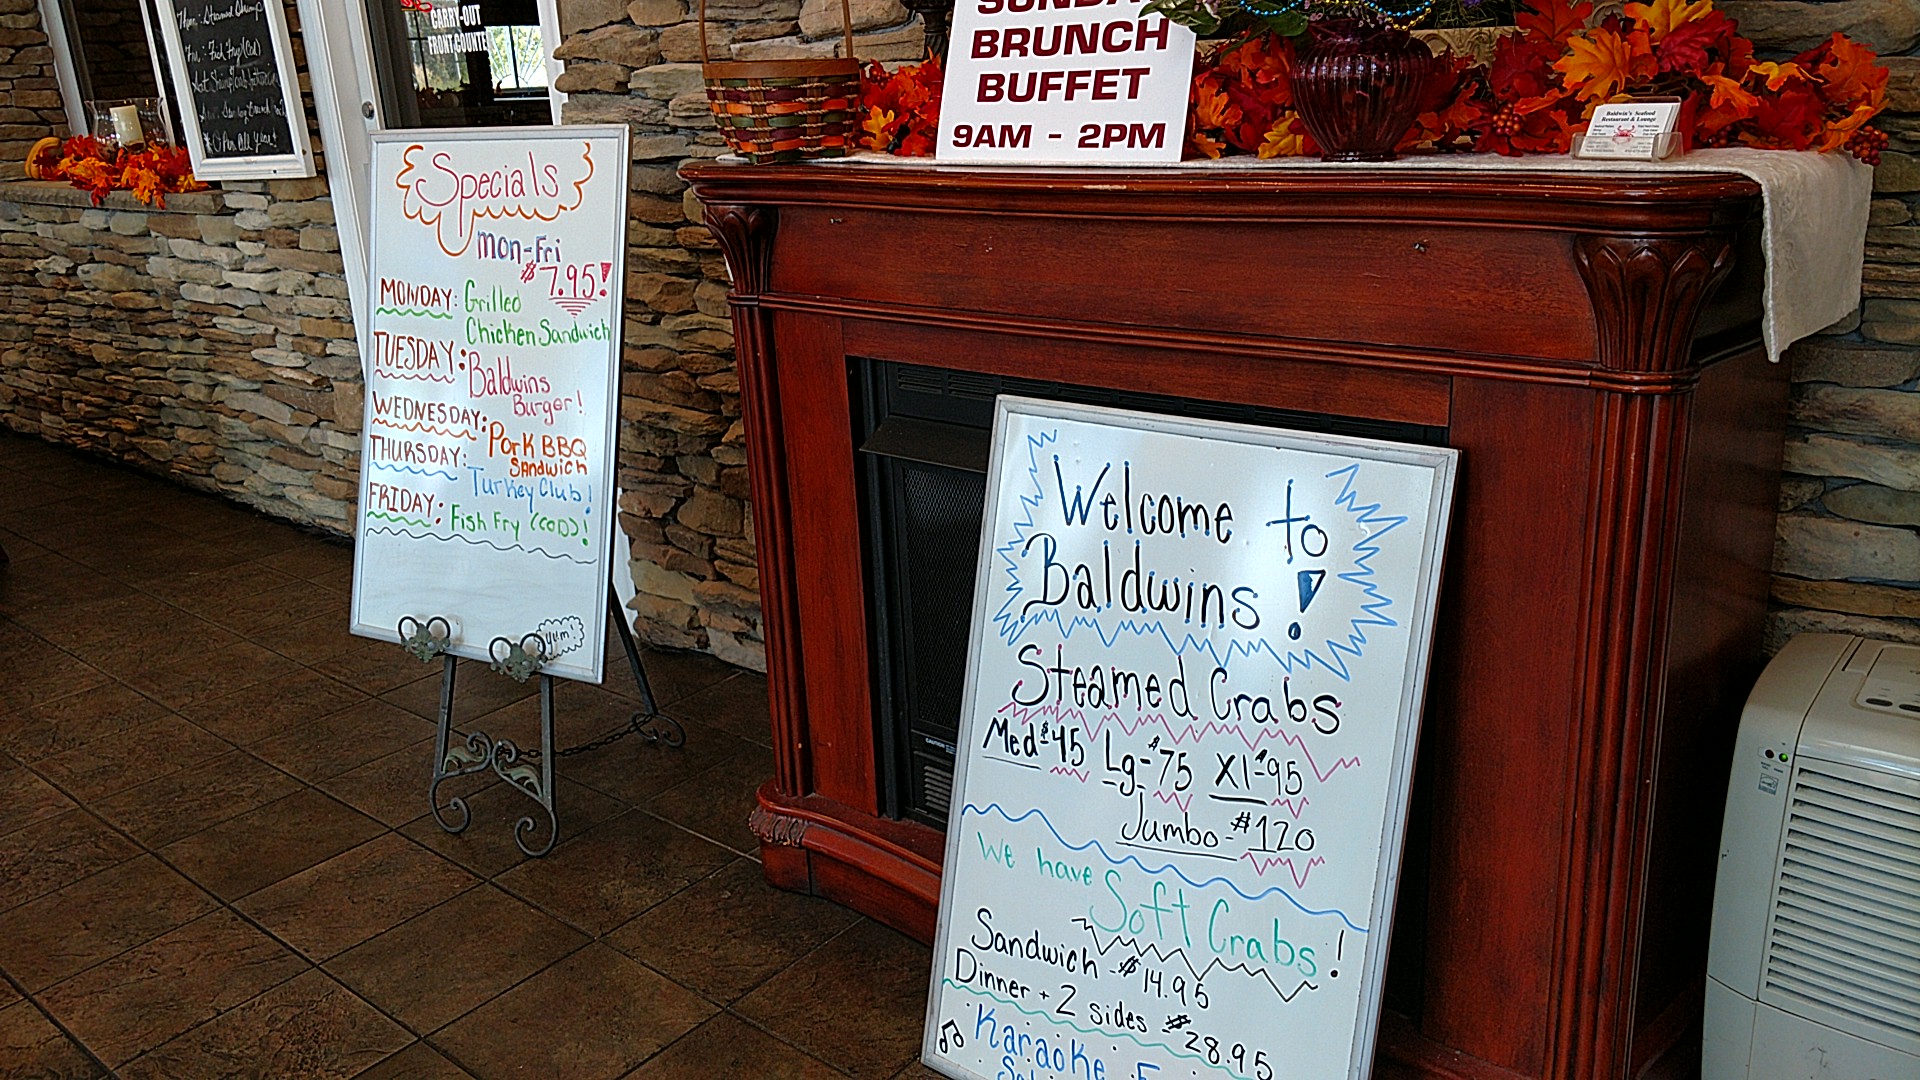 Steamed Shrimp
Fri: Fish Fry (Cod)
Open All Year!
CARRY-OUT
FRONT COUNTE
SUNDA
BRUNCH
BUFFET
9AM - 2PM
Baldwin's Seafood
Restaurant & Lounge
Specials
mon-Fri
$7.95!
MONDAY: Grilled
Chicken Sandwich
TUESDAY: Baldwins
Burger!
WEDNESDAY: Pork BBQ
SANDWICH
THURSDAY: Turkey Club!
FRIDAY: Fish Fry (COD)!
yum!
Welcome to
Baldwins!
Steamed Crabs
Med-$45 Lg-$75 Xl-$95
Jumbo-$120
We have Soft Crabs!
Sandwich-$14.95
Dinner + 2 sides-$28.95
Karaoke
CAUTION